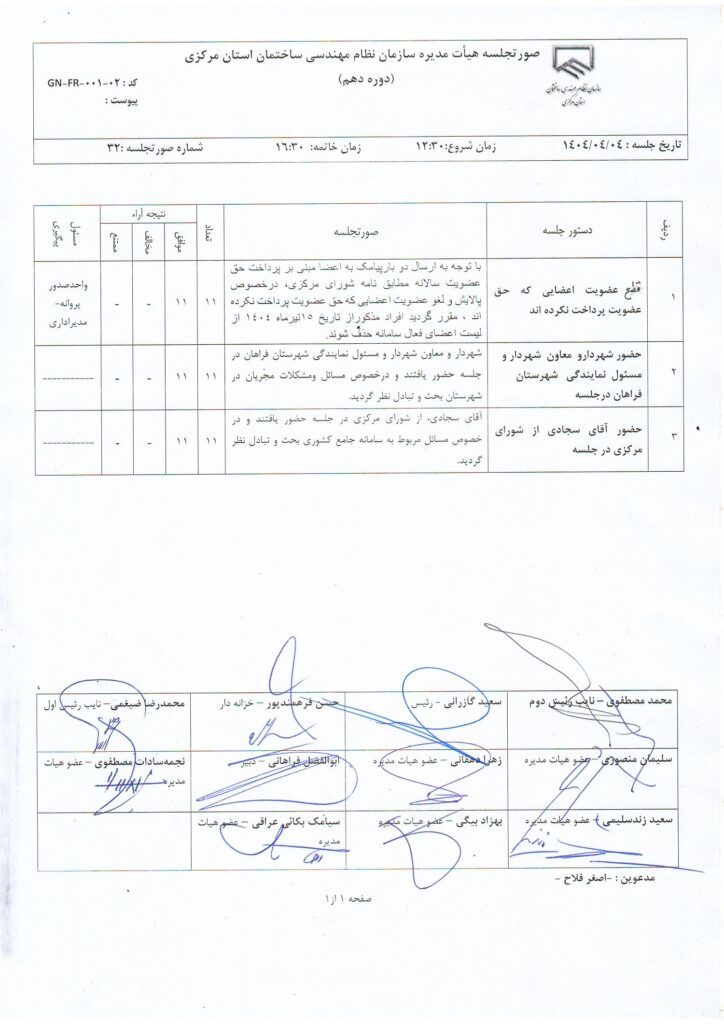 صورتجلسه هیأت مدیره سازمان نظام مهندسی ساختمان استان مرکزی
(دوره دهم)
سازمان نظام مهندسی ساختمان
استان مرکزی
کد : GN-FR-۰۰۱-۰۲
پیوست :
تاریخ جلسه : ۱۴۰۴/۰۴/۰۴
زمان شروع:۱۲:۳۰
زمان خاتمه: ۱۶:۳۰
شماره صورتجلسه :۳۲
ردیف
دستور جلسه
صورتجلسه
تعداد
نتیجه آراء
موافق
مخالف
ممتنع
مسئول
پیگیری
۱
قطع عضویت اعضایی که حق
عضویت پرداخت نکرده اند
با توجه به ارسال دو بارپیامک به اعضا مبنی بر پرداخت حق
عضویت سالانه مطابق نامه شورای مرکزی، درخصوص
پالایش و لغو عضویت اعضایی که حق عضویت پرداخت نکرده
اند ، مقرر گردید افراد مذکوراز تاریخ ۱۵تیرماه ۱۴۰۴ از
لیست اعضای فعال سامانه حذف شوند.
۱۱
۱۱
-
-
واحدصدور
پروانه-
مدیراداری
۲
حضور شهردارو معاون شهردار و
مسئول نمایندگی شهرستان
فراهان درجلسه
شهردار و معاون شهردار و مسئول نمایندگی شهرستان فراهان در
جلسه حضور یافتند و درخصوص مسائل ومشکلات مجریان در
شهرستان بحث و تبادل نظر گردید.
۱۱
۱۱
-
-
-----------
۳
حضور آقای سجادی از شورای
مرکزی در جلسه
آقای سجادی، از شورای مرکزی در جلسه حضور یافتند و در
خصوص مسائل مربوط به سامانه جامع کشوری بحث و تبادل نظر
گردید.
۱۱
۱۱
-
-
-----------
محمد مصطفوی – نایب رئیس دوم
سعید گازرانی - رئیس
حسن فرهمندپور – خزانه دار
محمدرضا ضیغمی – نایب رئیس اول
سلیمان منصوری – عضو هیات مدیره
زهرا دهقانی – عضو هیات مدیره
ابوالفضل فراهانی – دبیر
نجمه‌سادات مصطفوی – عضو هیات
مدیره
سعید زندسلیمی – عضو هیات مدیره
بهزاد بیگی – عضو هیات مدیره
سیامک بکائی عراقی – عضو هیات
مدیره
مدعوین : -اصغر فلاح -
صفحه ۱ از۱